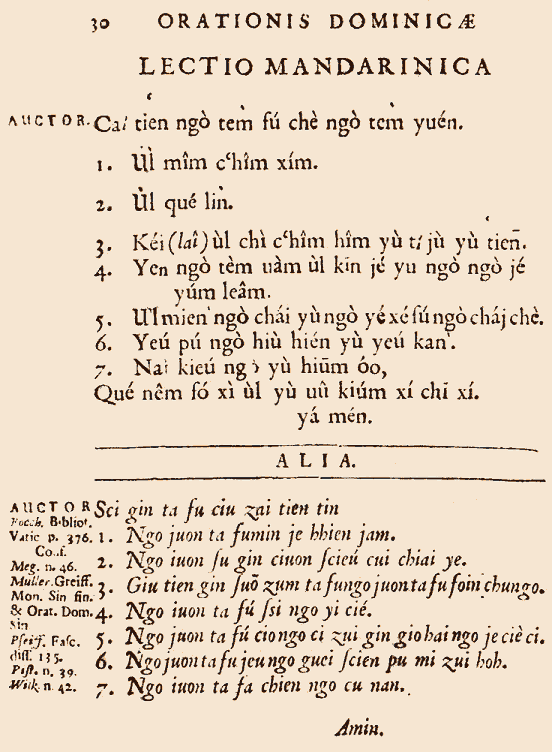 30 ORATIONIS DOMINICÆ
LECTIO MANDARINICA
AUCTOR. Cai tien ngò tem̀ fú chè ngò tem̀ yuén.
1. Ùl mîm c‘hîm xím.
2. Ùl qué lin̂.
3. Kéi (laî) ùl chì c‘hîm hîm yù tí jù yù tien̄.
4. Yen ngò tèm uàm ùl kīn jé yu ngò ngò jé
yúm leâm.
5. Ùl mien ngò chái yù ngò yé xé fú ngò cháj chè.
6. Yeú pú ngò hiù hién yù yeú kan.
7. Nai kieú ngò yù hiūm óo,
Qué nêm fó xì ùl yù uû kiúm xí chī xí.
yá mén.
ALIA.
AUCTOR Sci gin ta fu ciu zai tien tin
Rocch. Bibliot.
Vatic p. 376. 1. Ngo juon ta fumin je hhien jam.
Conf.
Meg. n. 46. 2. Ngo iuon ſu gin ciuon ſcieú cui chiai ye.
Muller. Greiff. 3. Giu tien gin ſuō zum ta fungo juon ta fu foin chungo.
Mon. Sin fin.
& Orat. Dom. 4. Ngo iuon ta fú ſsi ngo yi cié.
Sin
Pfeiff. Faſc. 5. Ngo juon ta fú ciongo ci zui gin gio hai ngo je ciè ci.
diſſ. 135. 6. Ngo juon ta fu jeu ngo guei ſcien pu mi zui hoh.
Piſt. n. 39.
Wilk n. 42. 7. Ngo iuon ta fa chien ngo cu nan.
Amin.